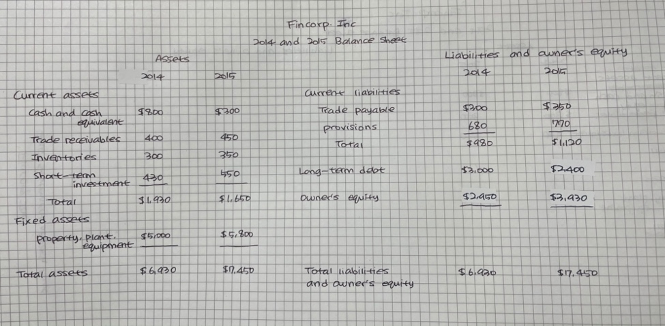 Fincorp. Inc
2014 and 2015 Balance Sheet
Assets
Liabilities and owner's equity
2014 2015
2014 2015
Current assets
Current liabilities
Cash and cash equivalent $800 $300
Trade payable $300 $350
Trade receivables 400 450
provisions 680 770
Inventories 300 350
Total $980 $1,120
Short-term investment 430 550
Long-term debt $3,000 $2,400
Total $1,930 $1,650
Owner's equity $2,950 $3,930
Fixed assets
Property, plant, equipment $5,000 $5,800
Total assets $6,930 $7,450
Total liabilities and owner's equity $6,930 $7,450